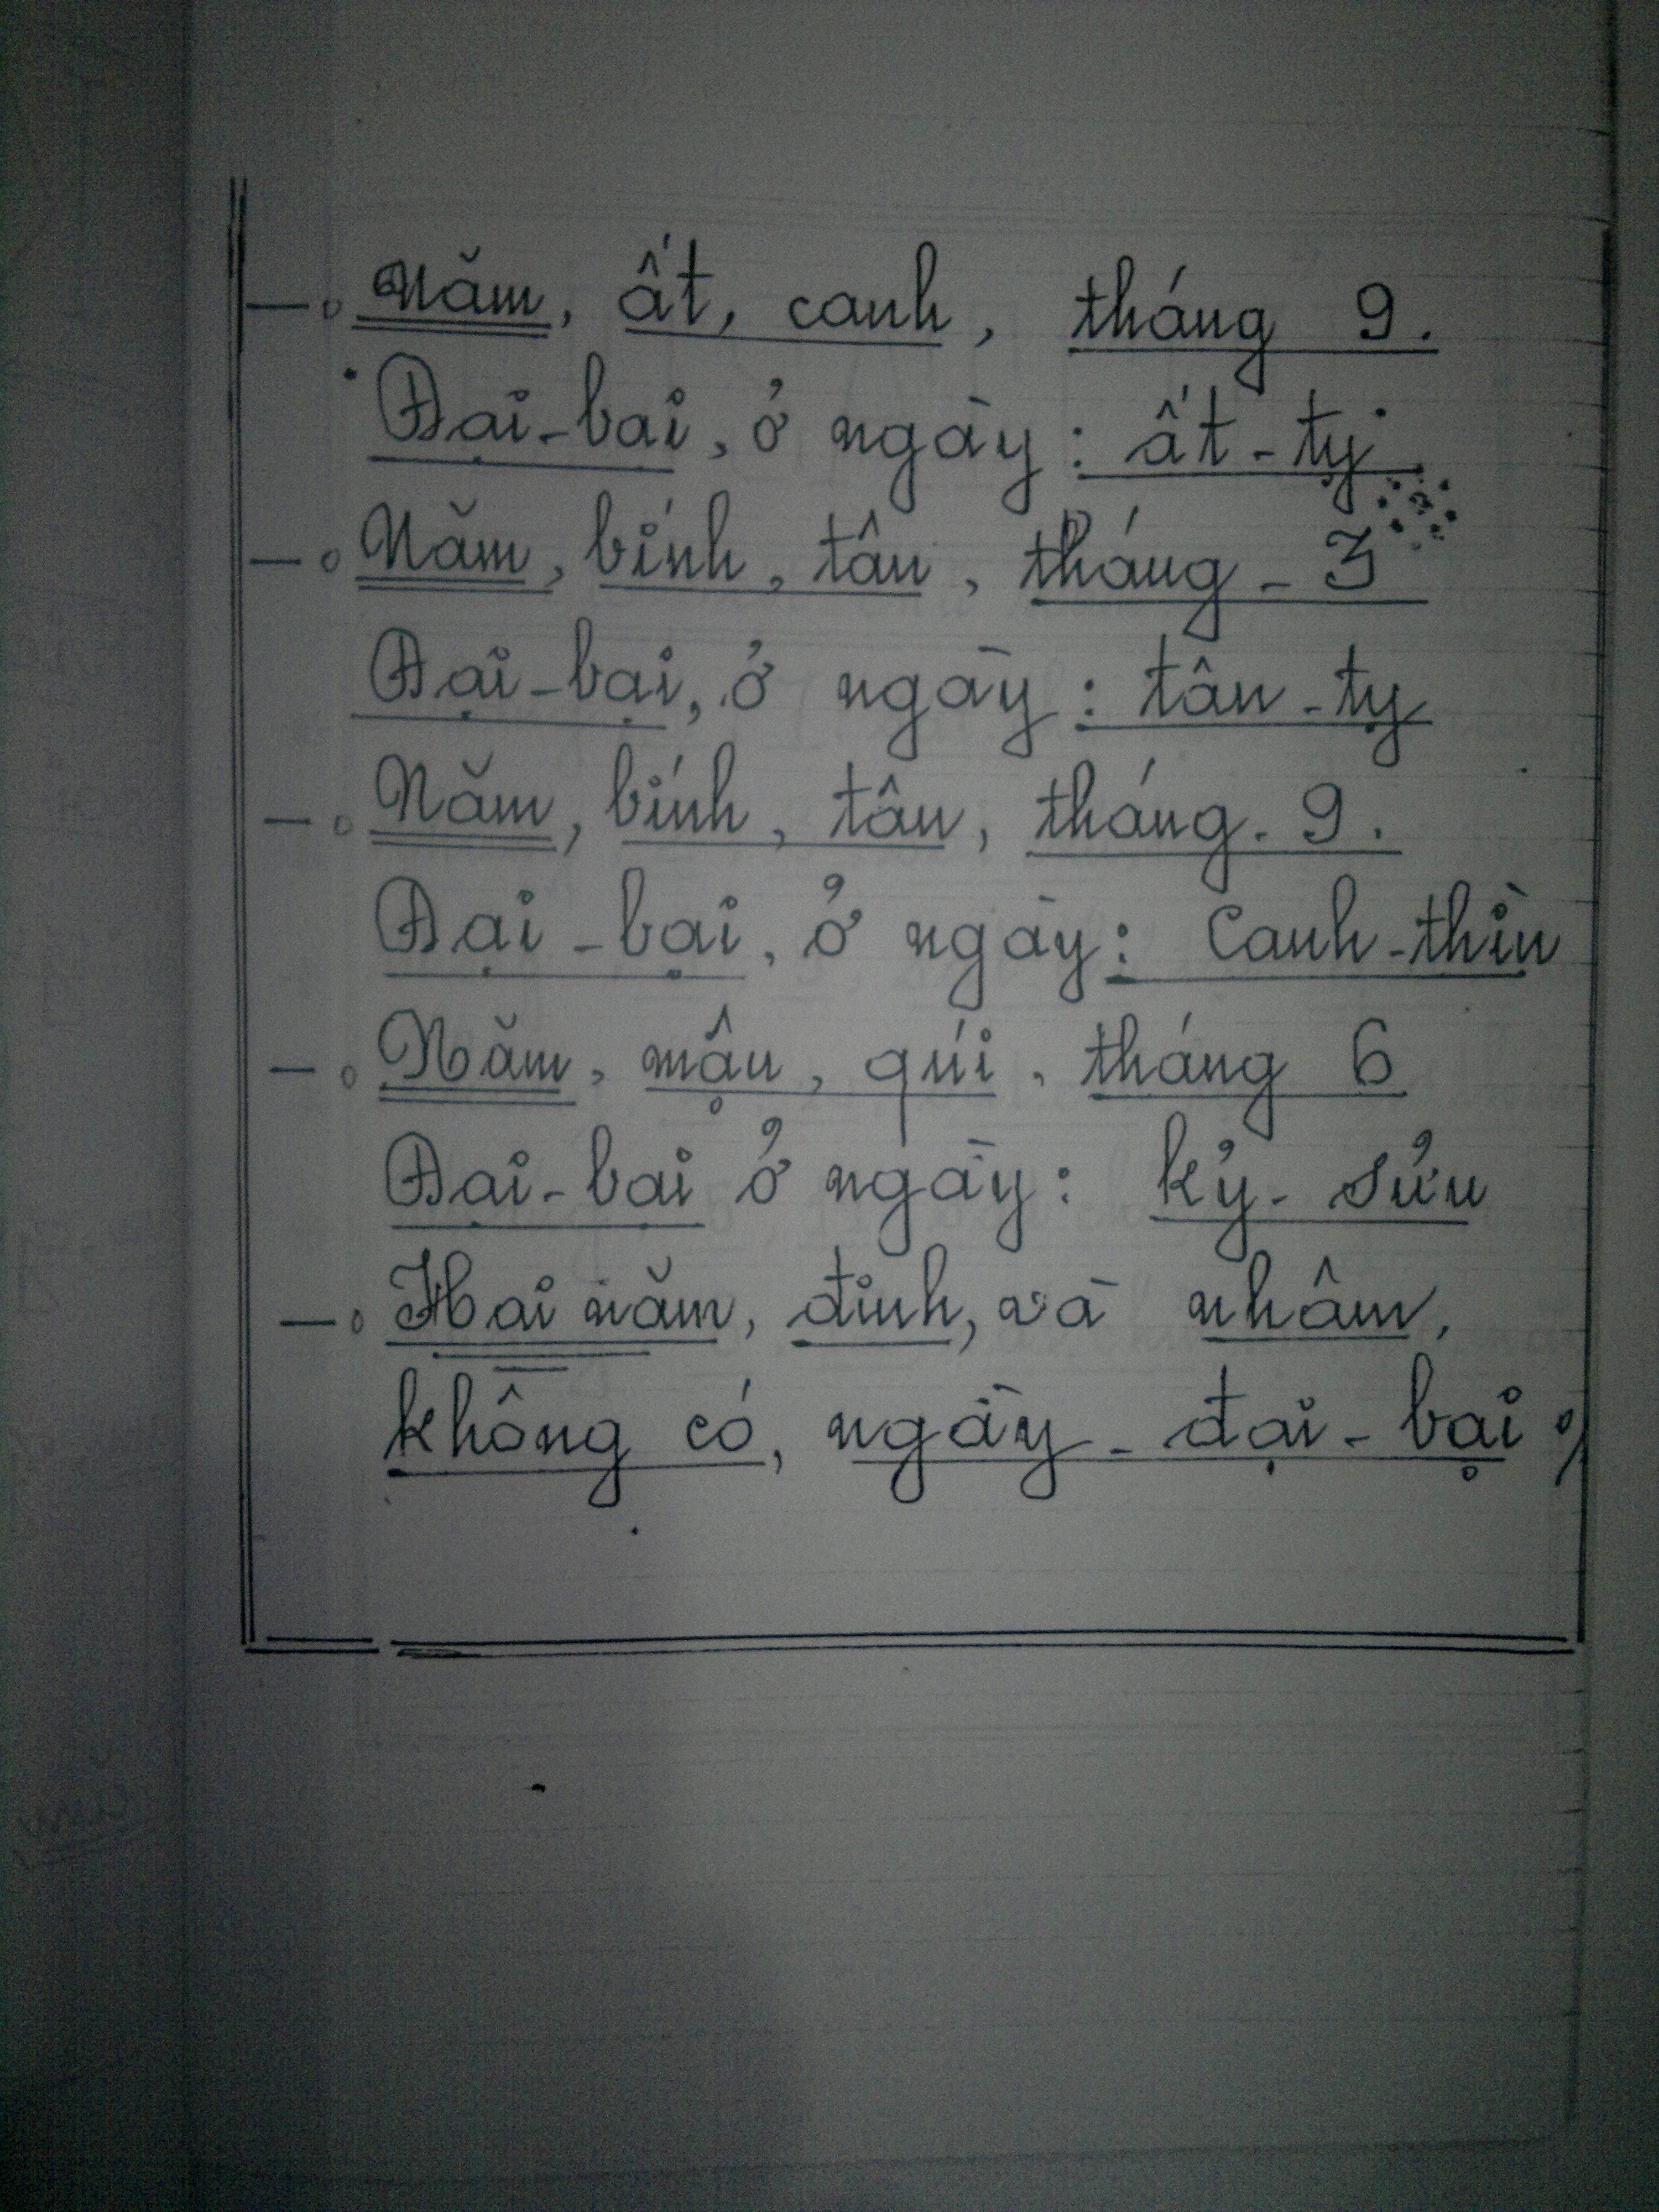 —o Năm, ất, canh, tháng 9.
Đại-bại, ở ngày: ất-tỵ
—o Năm, bính, tân, tháng - 3
Đại-bại, ở ngày: tân-tỵ
—o Năm, bính, tân, tháng. 9.
Đại-bại, ở ngày: Canh-thìn
—o Năm, mậu, qúi, tháng 6
Đại-bại ở ngày: kỷ- sửu
—o Hai năm, đinh, và nhâm,
không có, ngày - đại - bại